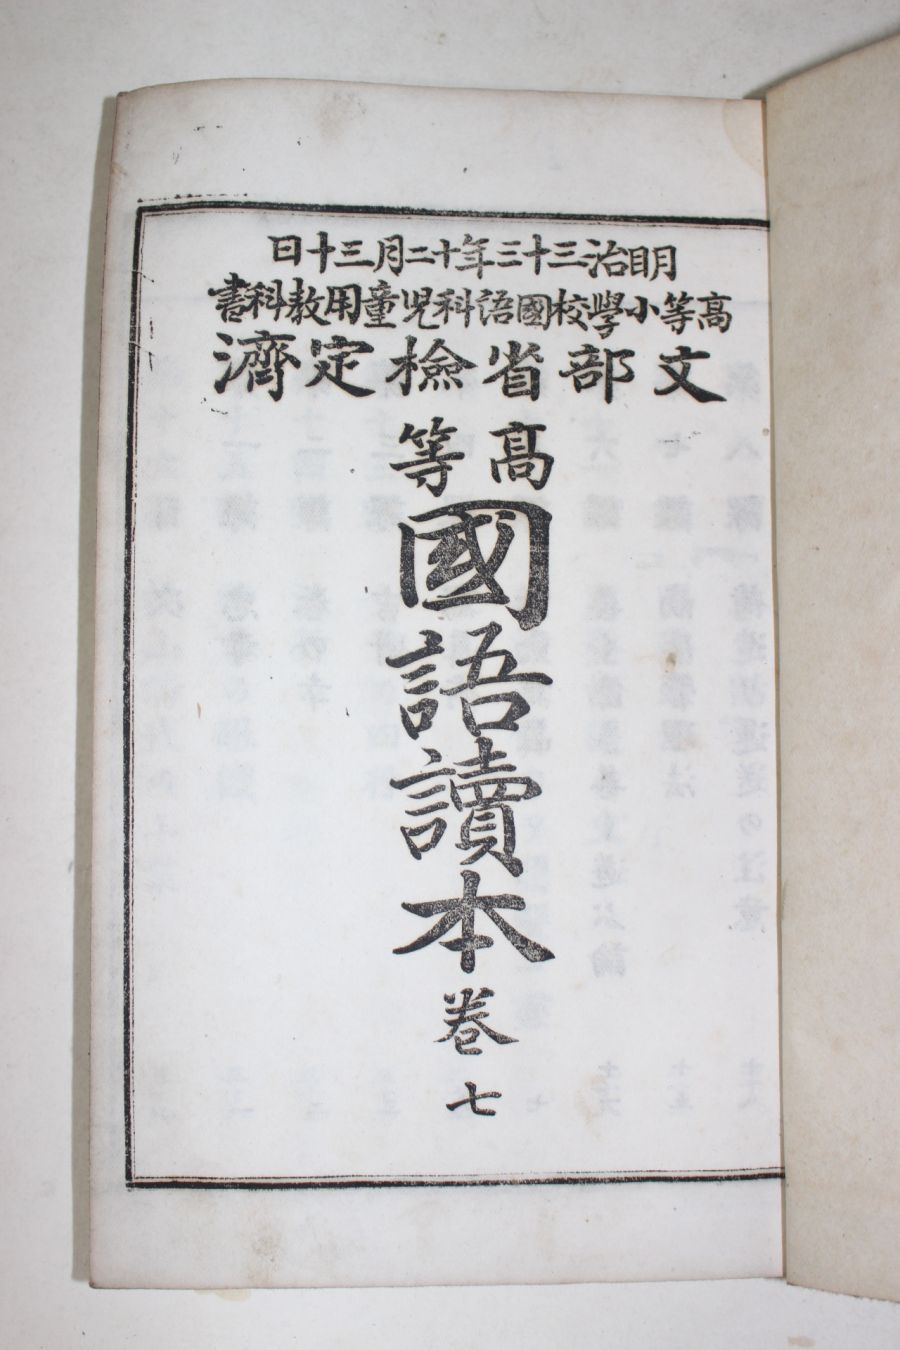 明治三十三年十二月三十日
高等小學校國語科兒童用教科書
文部省檢定濟
高等
國語讀本
卷七